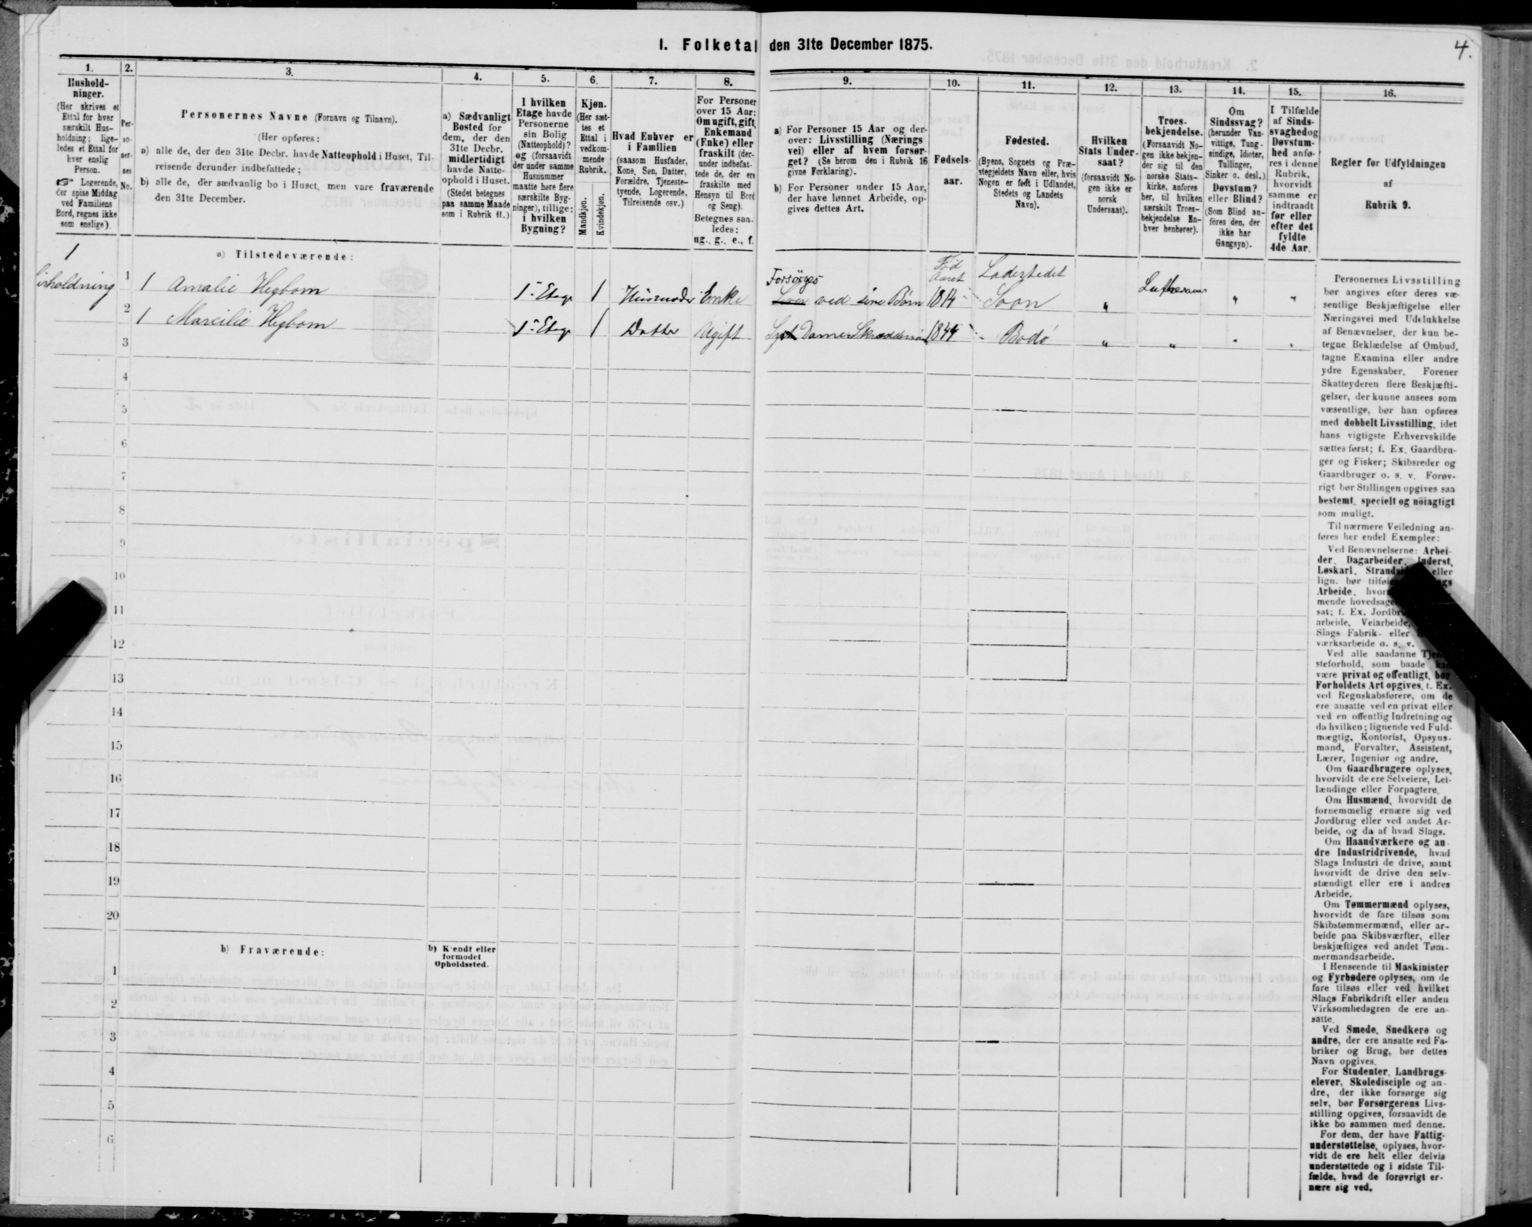 I. Folketal den 31te December 1875.
4.
1.
Hushold-
ninger.
(Her skrives et
Ettal for hver
særskilt Hus-
holdning; lige-
ledes et Ettal for
hver enslig
Person.
☞ Logerende,
der spise Middag
ved Familiens
Bord, regnes ikke
som enslige).
2.
Per-
so-
ner-
nes
No.
3.
Personernes Navne (Fornavn og Tilnavn).
(Her opføres:
a) alle de, der den 31te Decbr. havde Natteophold i Huset, Til-
reisende derunder indbefattede;
b) alle de, der sædvanlig bo i Huset, men vare fraværende
den 31te December.
4.
a) Sædvanligt
Bosted for
dem, der den
31te Decbr.
midlertidigt
havde Natte-
ophold i Huset.
(Stedet betegnes
paa samme Maade
som i Rubrik 11.)
5.
I hvilken
Etage havde
Personerne
sin Bolig
(Natteophold)?
og (forsaavidt
der under samme
Husnummer
maatte høre flere
særskilte Byg-
ninger), tillige:
i hvilken
Bygning?
6.
Kjøn.
(Her sæt-
tes et
Ettal i
vedkom-
mende
Rubrik.
Mandkjøn.
Kvindekjøn.
7.
Hvad Enhver er
i Familien
(saasom Husfader,
Kone, Søn, Datter,
Forældre, Tjeneste-
tyende, Logerende,
Tilreisende osv.)
8.
For Personer
over 15 Aar:
Om ugift, gift,
Enkemand
(Enke) eller
fraskilt (der-
under indbefat-
tede de, der ere
fraskilte med
Hensyn til Bord
og Seng).
Betegnes saa-
ledes:
ug., g., e., f.
9.
a) For Personer 15 Aar og der-
over: Livsstilling (Nærings-
vei) eller af hvem forsør-
get? (Se herom den i Rubrik 16
givne Forklaring).
b) For Personer under 15 Aar,
der have lønnet Arbeide, op-
gives dettes Art.
10.
Fødsels-
aar.
11.
Fødested.
(Byens, Sognets og Præ-
stegjeldets Navn eller, hvis
Nogen er født i Udlandet,
Stedets og Landets
Navn).
12.
Hvilken
Stats Under-
saat?
(forsaavidt No-
gen ikke er
norsk
Undersaat).
13.
Troes-
bekjendelse.
(Forsaavidt No-
gen ikke bekjen-
der sig til den
norske Stats-
kirke, anføres
her, til hvilken
særskilt Troes-
bekjendelse En-
hver henhører).
14.
Om
Sindssvag?
(herunder Van-
vittige, Tung-
sindige, Idioter,
Tullinger,
Sinker o. desl.)
Døvstum?
eller Blind?
(Som Blind an-
føres den, der
ikke har
Gangsyn).
15.
I Tilfælde
af Sinds-
svaghed og
Døvstum-
hed anfø-
res i denne
Rubrik,
hvorvidt
samme er
indtraadt
før eller
efter det
fyldte
4de Aar.
16.
Regler for Udfyldningen
af
Rubrik 9.
a) Tilstedeværende:
1
1 1 Amalie Hegbom 1ste Etage 1 Huusmoder Enke Forsörges ved sine Börn Född Aaret 1814 Ladestedet Soon " Lutheraner " "
2 1 Marcilie Hegbom 1ste Etage 1 Datter Ugift 1844 Bodö " " " "
3
4
5
6
7
8
9
10
11
12
13
14
15
16
17
18
19
20
b) Fraværende:
b) Kjendt eller
formodet
Opholdssted.
1
2
3
4
5
6
Personernes Livsstilling
bør angives efter deres væ-
sentlige Beskjæftigelse eller
Næringsvei med Udelukkelse
af Benævnelser, der kun be-
tegne Beklædelse af Ombud,
tagne Examina eller andre
ydre Egenskaber. Forener
Skatteyderen flere Beskjæfti-
gelser, der kunne ansees som
væsentlige, bør han opføres
med dobbelt Livsstilling, idet
hans vigtigste Erhvervskilde
sættes først; f. Ex. Gaardbru-
ger og Fisker; Skibsreder og
Gaardbruger o. s. v. Forøv-
rigt bør Stillingen opgives saa
bestemt, specielt og nøiagtigt
som muligt.
Til nærmere Veiledning an-
føres her endel Exempler:
Ved Benævnelserne: Arbei-
der, Dagarbeider, Inderst,
Løskarl, eller
lign. bør
Arbeide,
mende
sat; f. Ex.
arbeide, Veiarbeide,
Slags Fabrik- eller
værksarbeide o. s. v.
Ved alle saadanne
steforhold, som baade
være privat og offentligt, bør
Forholdets Art opgives, t. Ex.
ved Regnskabsførere, om de
ere ansatte ved en privat eller
ved en offentlig Indretning og
da hvilken; lignende ved Fuld-
mægtig, Kontorist, Opsyns-
mand, Forvalter, Assistent,
Lærer, Ingeniør og andre.
Om Gaardbrugere oplyses,
hvorvidt de ere Selveiere, Lei-
lændinge eller Forpagtere.
Om Husmænd, hvorvidt de
fornemmelig ernære sig ved
Jordbrug eller ved andet Ar-
beide, og da af hvad Slags.
Om Haandværkere og an-
dre Industridrivende, hvad
Slags Industri de drive, samt
hvorvidt de drive den selv-
stændigt eller ere i andres
Arbeide.
Om Tømmermænd oplyses,
hvorvidt de fare tilsøs som
Skibstømmermænd, eller ar-
beide paa Skibsværfter, eller
beskjæftiges ved andet Tøm-
mermandsarbeide.
I Henseende til Maskinister
og Fyrbødere oplyses, om de
fare tilsøs eller ved hvilket
Slags Fabrikdrift eller anden
Virksomhedsgren de ere an-
satte.
Ved Smede, Snedkere og
andre, der ere ansatte ved Fa-
briker og Brug, bør dettes
Navn opgives.
For Studenter, Landbrugs-
elever, Skoledisciple og an-
dre, der ikke forsørge sig
selv, bør Forsørgerens Livs-
stilling opgives, forsaavidt de
ikke bo sammen med denne.
For dem, der have Fattig-
understøttelse, oplyses, hvor-
vidt de ere helt eller delvis
understøttede og i sidste Til-
fælde, hvad de forøvrigt er-
nære sig ved.